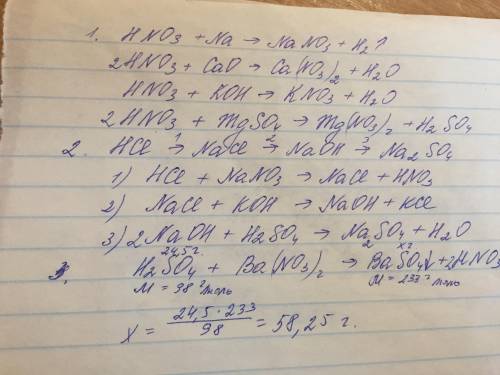 1. HNO3 + Na → NaNO3 + H2↑
2HNO3 + CaO → Ca(NO3)2 + H2O
HNO3 + KOH → KNO3 + H2O
2HNO3 + MgSO4 → Mg(NO3)2 + H2SO4
2. HCl 1→ NaCl 2→ NaOH 3→ Na2SO4
1) HCl + NaNO3 → NaCl + HNO3
2) NaCl + KOH → NaOH + KCl
3) 2NaOH + H2SO4 → Na2SO4 + H2O
24,5г. xг
3. H2SO4 + Ba(NO3)2 → BaSO4↓ + 2HNO3
M = 98 г/моль M = 233 г/моль
x = 24,5 · 233 / 98 = 58,25 г.